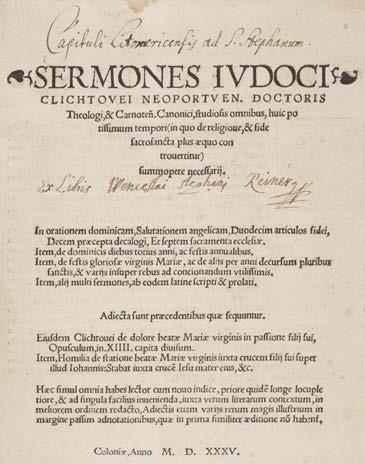 Capituli Litomericensis ad S. Stephanum.
SERMONES IVDOCI
CLICHTOVEI NEOPORTVEN. DOCTORIS
Theologi, & Carnoteñ. Canonici, studiosis omnibus, huic po
tissimum tempori (in quo de religione, & fide
sacrosancta plus æquo con
trouertitur)
summopere necessarij.
ex Libris Wenceslai Stephani Reiner
In orationem dominicam, Salutationem angelicam, Duodecim articulos fidei,
Decem præcepta decalogi, Et septem sacramenta ecclesiæ.
Item, de dominicis diebus totius anni, ac festis annualibus.
Item, de festis gloriosæ virginis Mariæ, ac de alijs per anni decursum pluribus
sanctis, & varijs insuper rebus ad concionandum vtilissimis.
Item, alij multi sermones, ab eodem latine scripti & prolati.
Adiecta sunt præcedentibus quæ sequuntur.
Eiusdem Clichtouei de dolore beatæ Mariæ virginis in passione filij sui,
Opusculum, in, XIIII. capita diuisum.
Item, Homilia de statione beatæ Mariæ virginis iuxta crucem filij sui super
illud Iohannis: Stabat iuxta crucẽ Iesu mater eius, &c.
Hæc simul omnia habes lector cum nouo indice, priore quidẽ longe locuple
tiore, & ad singula facilius inuenienda, iuxta verum literarum contextum, in
meliorem ordinem redacto, Adiectis etiam varijs rerum magis illustrium in
margine passim adnotationibus, quæ in prima similiter æditione nõ habent,
Coloniæ, Anno M. D. XXXV.